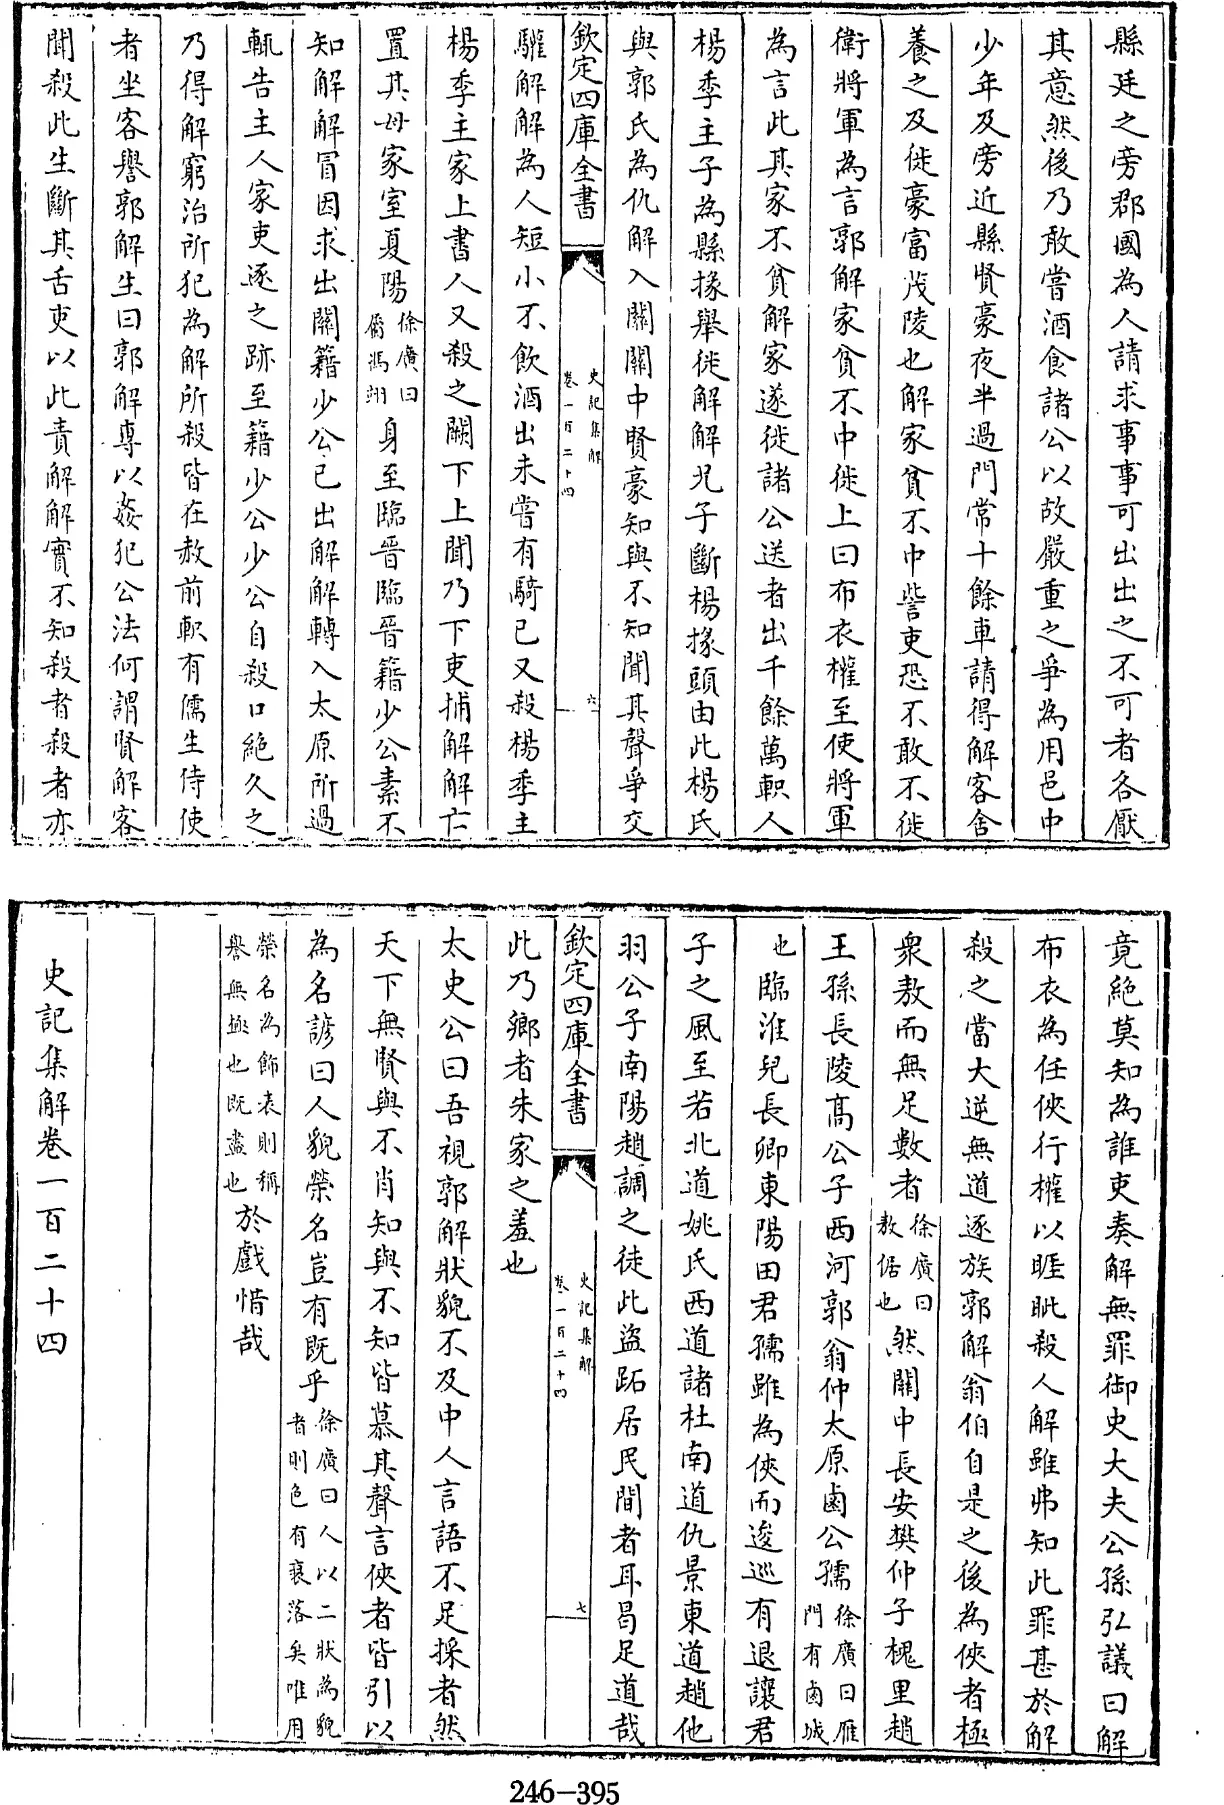 縣廷之旁郡國為人請求事事可出出之不可者各厭
其意然後乃敢嘗酒食諸公以故嚴重之爭為用邑中
少年及旁近縣賢豪夜半過門常十餘車請得解客舍
養之及徙豪富茂陵也解家貧不中訾吏恐不敢不徙
衛將軍為言郭解家貧不中徙上曰布衣權至使將軍
為言此其家不貧解家遂徙諸公送者出千餘萬軹人
楊季主子為縣掾舉徙解解兄子斷楊掾頭由此楊氏
與郭氏為仇解入關關中賢豪知與不知聞其聲爭交
欽定四庫全書
史記集解
卷一百二十四
六
驩解解為人短小不飲酒出未嘗有騎已又殺楊季主
楊季主家上書人又殺之闕下上聞乃下吏捕解解亡
置其母家室夏陽徐廣曰屬馮翊身至臨晉臨晉籍少公素不
知解解冒因求出關籍少公已出解解轉入太原所過
輒告主人家吏逐之跡至籍少公少公自殺口絕久之
乃得解窮治所犯為解所殺皆在赦前軹有儒生侍使
者坐客譽郭解生曰郭解專以姦犯公法何謂賢解客
聞殺此生斷其舌吏以此責解解實不知殺者殺者亦
竟絕莫知為誰吏奏解無罪御史大夫公孫弘議曰解
布衣為任俠行權以睚眦殺人解雖弗知此罪甚於解
殺之當大逆無道遂族郭解翁伯自是之後為俠者極
衆敖而無足數者徐廣曰敖倨也然關中長安樊仲子槐里趙
王孫長陵高公子西河郭翁仲太原鹵公孺徐廣曰雁門有鹵城
也臨淮兒長卿東陽田君孺雖為俠而逡巡有退讓君
子之風至若北道姚氏西道諸杜南道仇景東道趙他
羽公子南陽趙調之徒此盜跖居民間者耳曷足道哉
欽定四庫全書
史記集解
卷一百二十四
七
此乃鄉者朱家之羞也
太史公曰吾視郭解狀貌不及中人言語不足採者然
天下無賢與不肖知與不知皆慕其聲言俠者皆引以
為名諺曰人貌榮名豈有既乎徐廣曰人以二狀為貌者則色有衰落矣唯用
榮名為飾表則稱譽無極也既盡也於戲惜哉
史記集解卷一百二十四
246-395